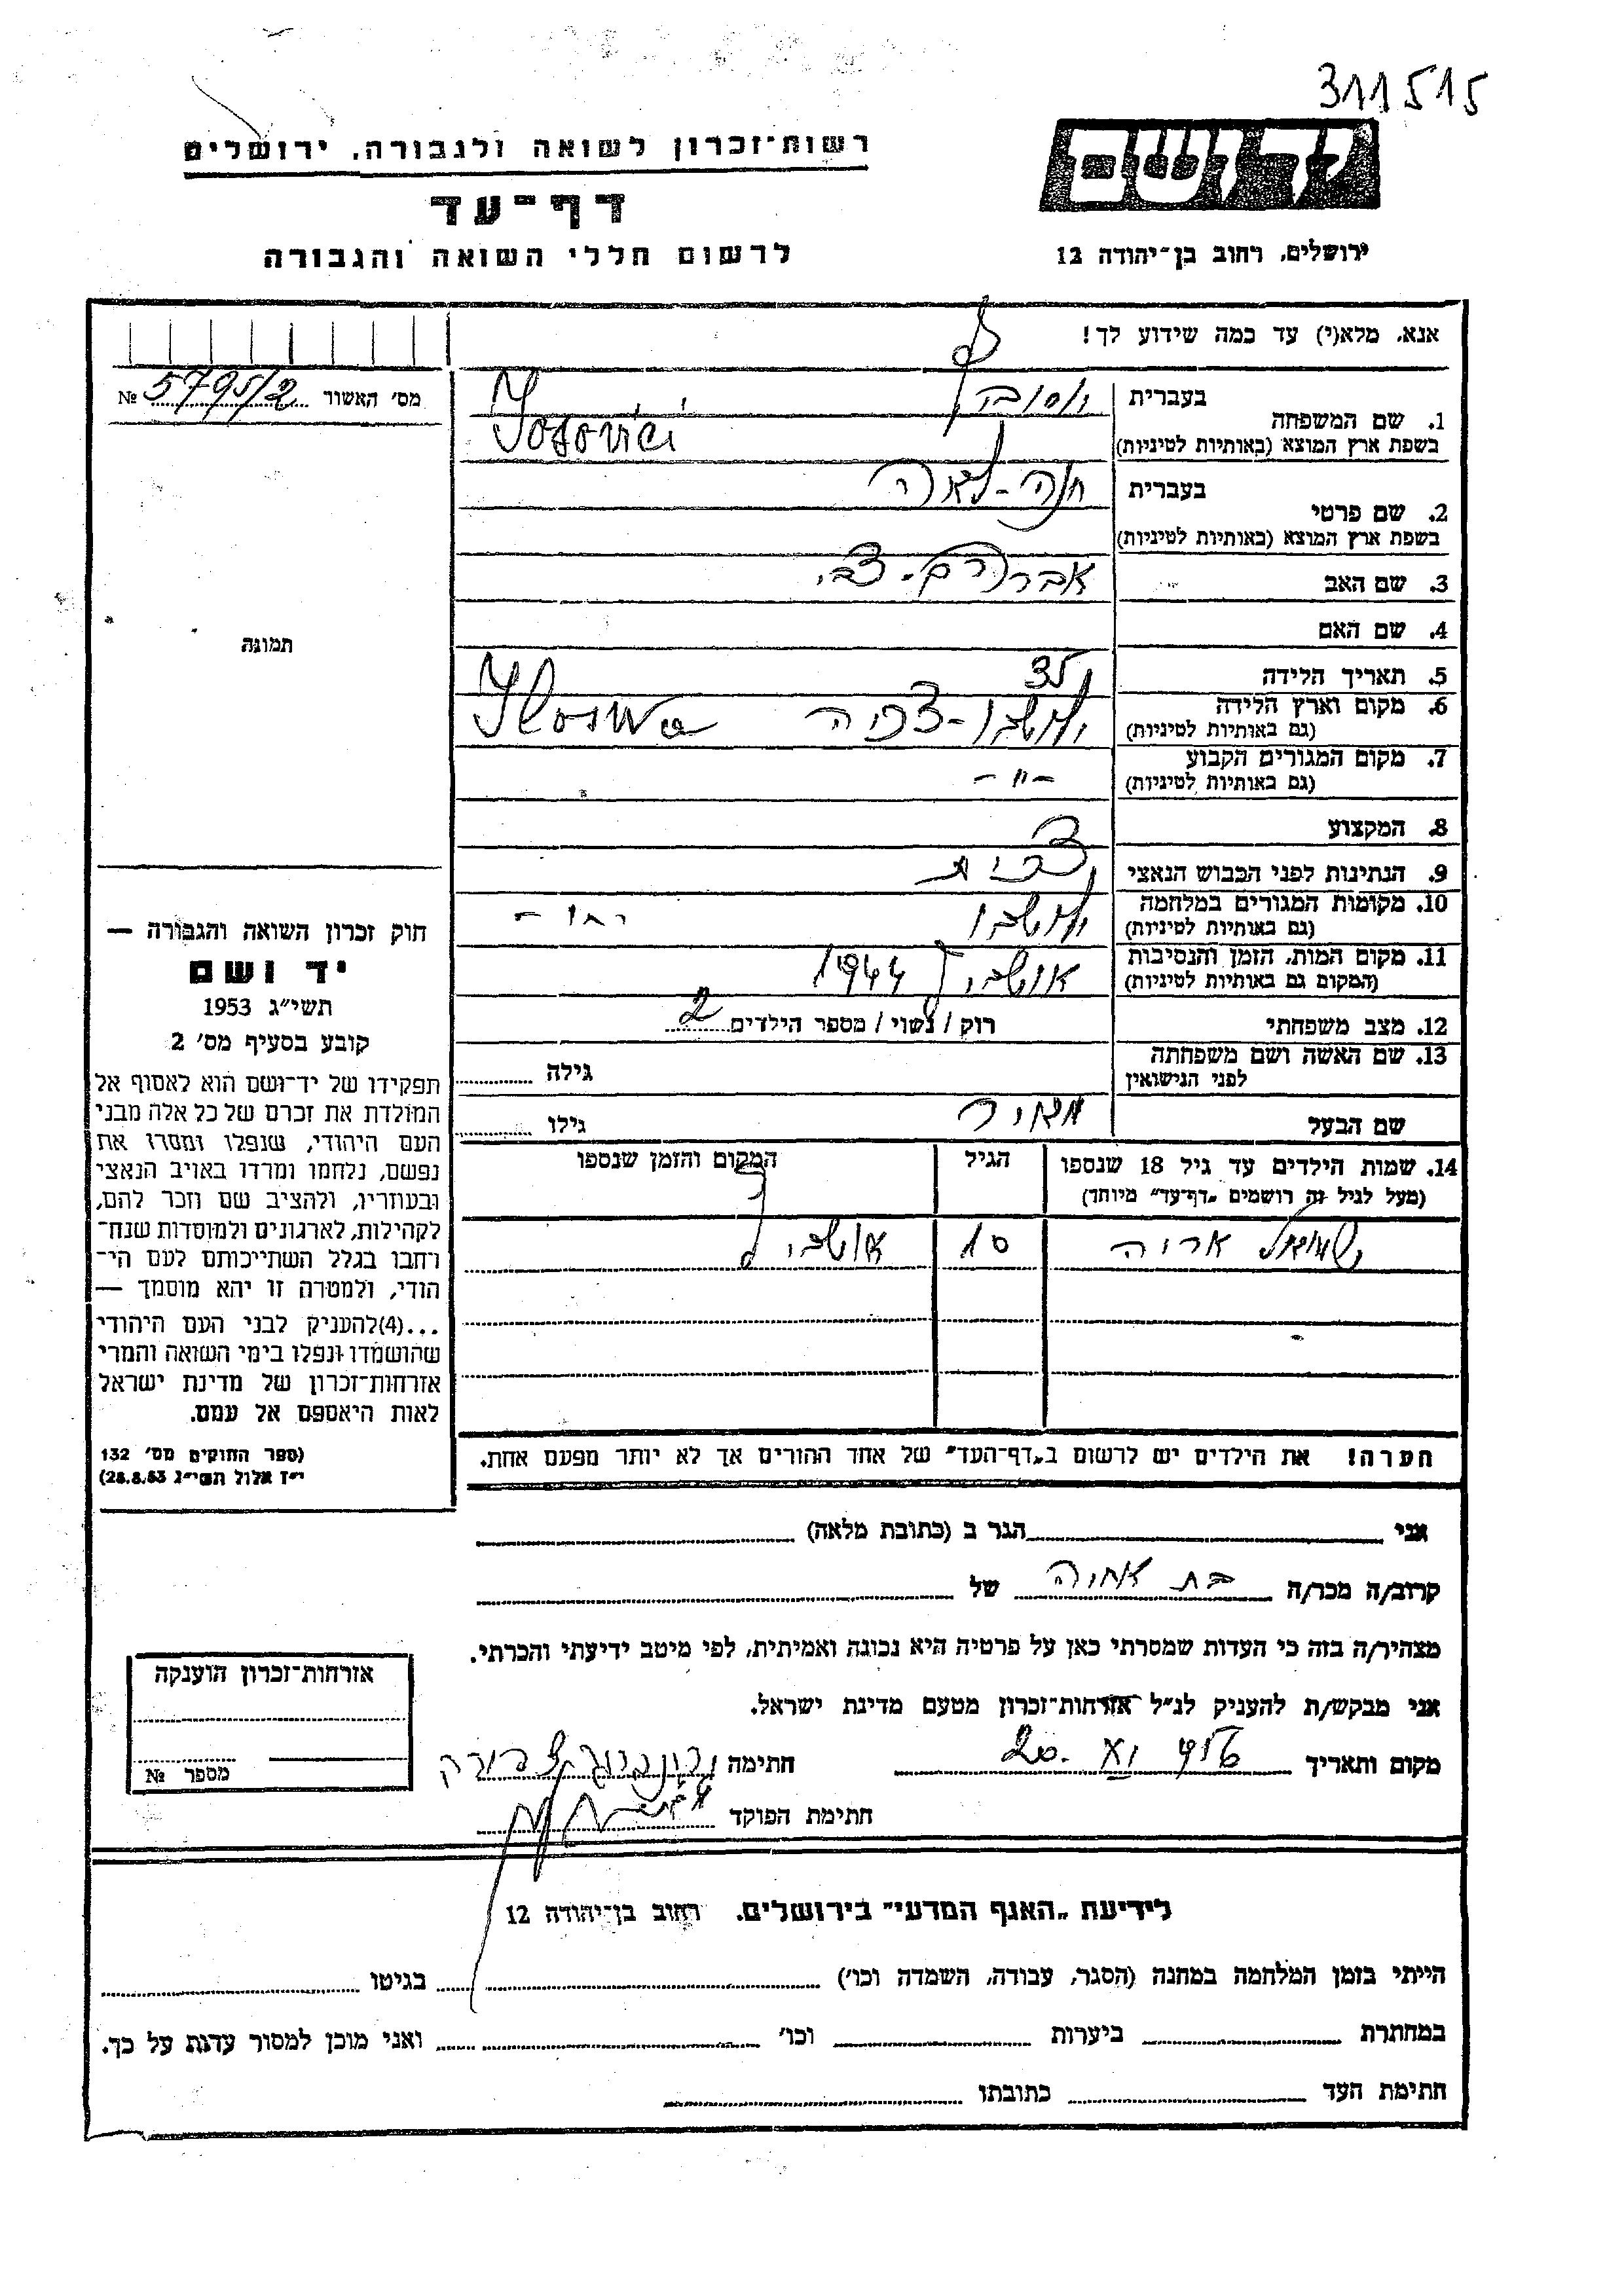 311515
רשות־זכרון לשואה ולגבורה, ירושלים
דף־עד
לרשום חללי השואה והגבורה
ידושם
ירושלים, רחוב בן־יהודה 12
אנא, מלא(י) עד כמה שידוע לך!
מס׳ האשור 5795/2 №
תמונה
1. שם המשפחה
בעברית
בשפת ארץ המוצא (באותיות לטיניות) Josovici
2. שם פרטי
בעברית חנה-לאה
בשפת ארץ המוצא (באותיות לטיניות)
3. שם האב אברהם-צבי
4. שם האם
5. תאריך הלידה 35
6. מקום וארץ הלידה
(גם באותיות לטיניות) Iloswa
7. מקום המגורים הקבוע
(גם באותיות לטיניות) -"-
8. המקצוע
9. הנתינות לפני הכבוש הנאצי
10. מקומות המגורים במלחמה
(גם באותיות לטיניות)
11. מקום המות, הזמן והנסיבות
(המקום גם באותיות לטיניות) אושביץ 1944
12. מצב משפחתי רוק / נשוי / מספר הילדים 2
13. שם האשה ושם משפחתה
לפני הנישואין גילה
שם הבעל מאיר גילו
14. שמות הילדים עד גיל 18 שנספו
(מעל לגיל זה רושמים „דף־עד״ מיוחד)
הגיל
המקום והזמן שנספו
שמואל אריה 10 אושביץ
הערה! את הילדים יש לרשום ב„דף־העד״ של אחד ההורים אך לא יותר מפעם אחת.
חוק זכרון השואה והגבורה —
יד ושם
תשי״ג 1953
קובע בסעיף מס׳ 2
תפקידו של יד־ושם הוא לאסוף אל
המולדת את זכרם של כל אלה מבני
העם היהודי, שנפלו ומסרו את
נפשם, נלחמו ומרדו באויב הנאצי
ובעוזריו, ולהציב שם וזכר להם,
לקהילות, לארגונים ולמוסדות שנח־
רחבו בגלל השתייכותם לעם הי־
הודי, ולמטרה זו יהא מוסמך —
...(4)להעניק לבני העם היהודי
שהושמדו ונפלו בימי השואה והמרי
אזרחות־זכרון של מדינת ישראל
לאות היאספם אל עמם.
(ספר החוקים מס׳ 132
י״ז אלול תשי״ג 28.8.53)
אני הגר ב (כתובת מלאה)
קרוב/ה מכר/ה בת אחיה של
מצהיר/ה בזה כי העדות שמסרתי כאן על פרטיה היא נכונה ואמיתית, לפי מיטב ידיעתי והכרתי.
אני מבקש/ת להעניק לנ״ל אזרחות־זכרון מטעם מדינת ישראל.
מקום ותאריך חתימה
חתימת הפוקד
אזרחות־זכרון הוענקה
מספר №
לידיעת „האגף המדעי״ בירושלים, רחוב בן־יהודה 12
הייתי בזמן המלחמה במחנה (הסגר, עבודה, השמדה וכו׳) בגיטו
במחתרת ביערות וכו׳ ואני מוכן למסור עדות על כך.
חתימת העד כתובתו